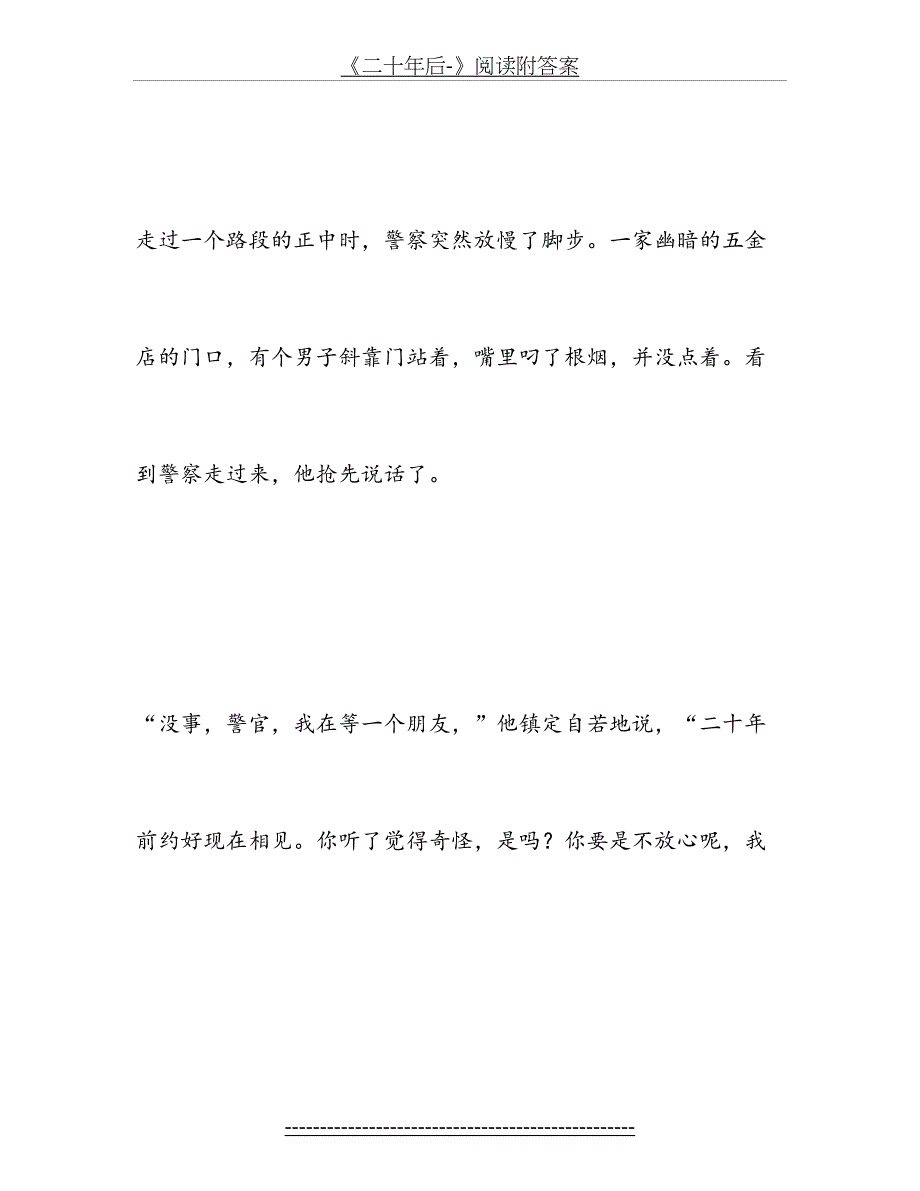 《二十年后-》阅读附答案
走过一个路段的正中时，警察突然放慢了脚步。一家幽暗的五金
店的门口，有个男子斜靠门站着，嘴里叼了根烟，并没点着。看
到警察走过来，他抢先说话了。
“没事，警官，我在等一个朋友，”他镇定自若地说，“二十年
前约好现在相见。你听了觉得奇怪，是吗？你要是不放心呢，我
--------------------------------------------------